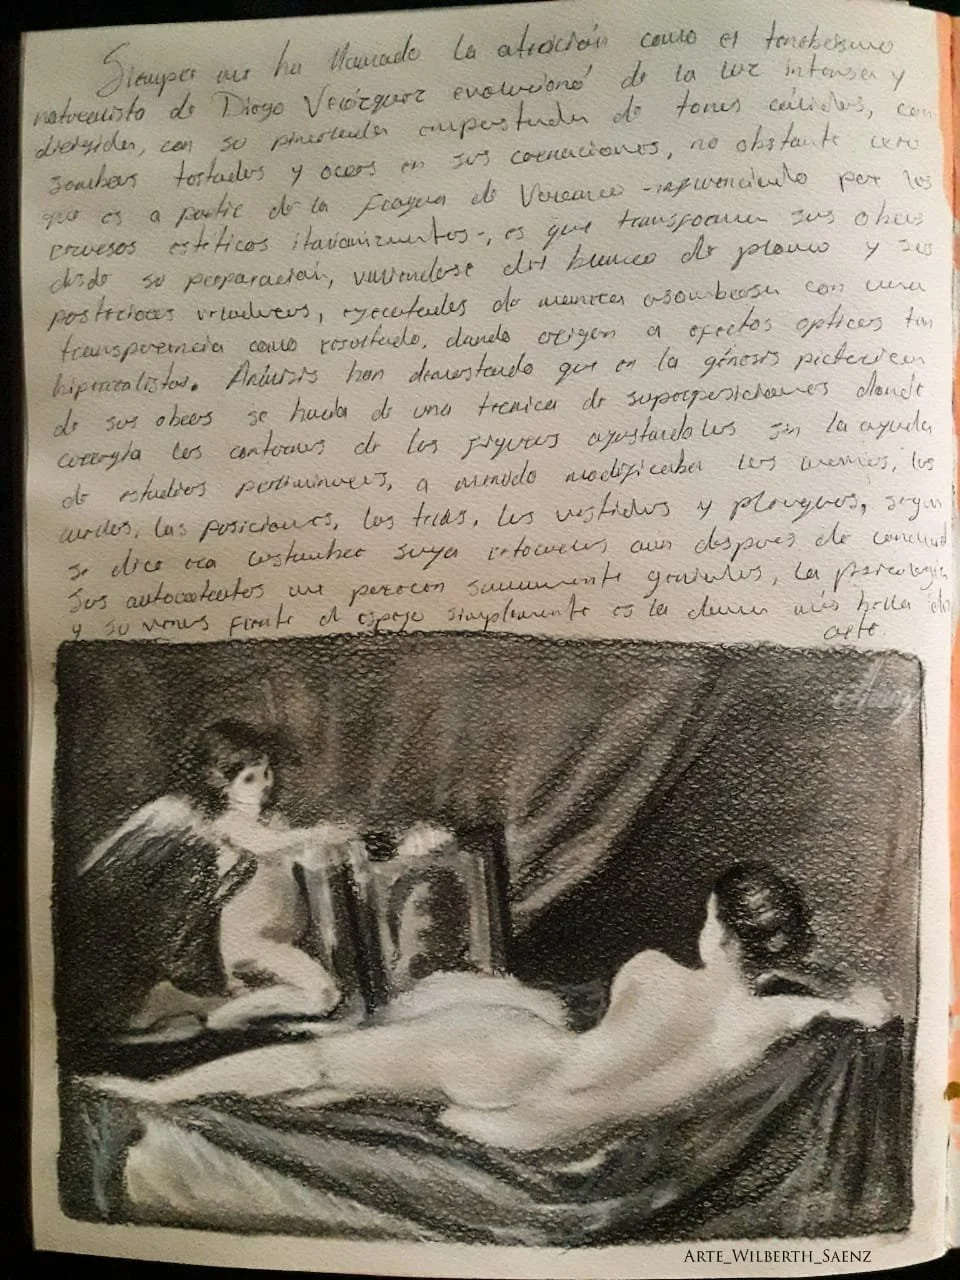 Siempre me ha llamado la atención como el tenebrismo
naturalista de Diego Velázquez evolucionó de la luz intensa y
dirigida, con su pincelada empastada de tonos cálidos, con
sombras tostadas y ocres en sus carnaciones, no obstante creo
que es a partir de la Fragua de Vulcano -influenciado por los
procesos estéticos italianizantes-, es que transforman sus obras
desde su preparación, valiendose del blanco de plomo y sus
posteriores veladuras, ejecutadas de manera asombrosa con una
transparencia como resultado, dando origen a efectos opticos tan
hiperrealistas. Análisis han demostrado que en la génesis pictorica
de sus obras se habla de una tecnica de superposiciones donde
corregía los contornos de las figuras ajustandolas sin la ayuda
de estudios preliminares, a menudo modificaba las manos, los
cuellos, las posiciones, las telas, los vestidos y pliegues, segun
se dice era costumbre suya retocarlos aun despues de concluid
sus autorretratos me parecen sumamente geniales, la psicologia
y su venus frente al espejo simplemente es la dama más bella del
arte.
Arte_Wilberth_Saenz